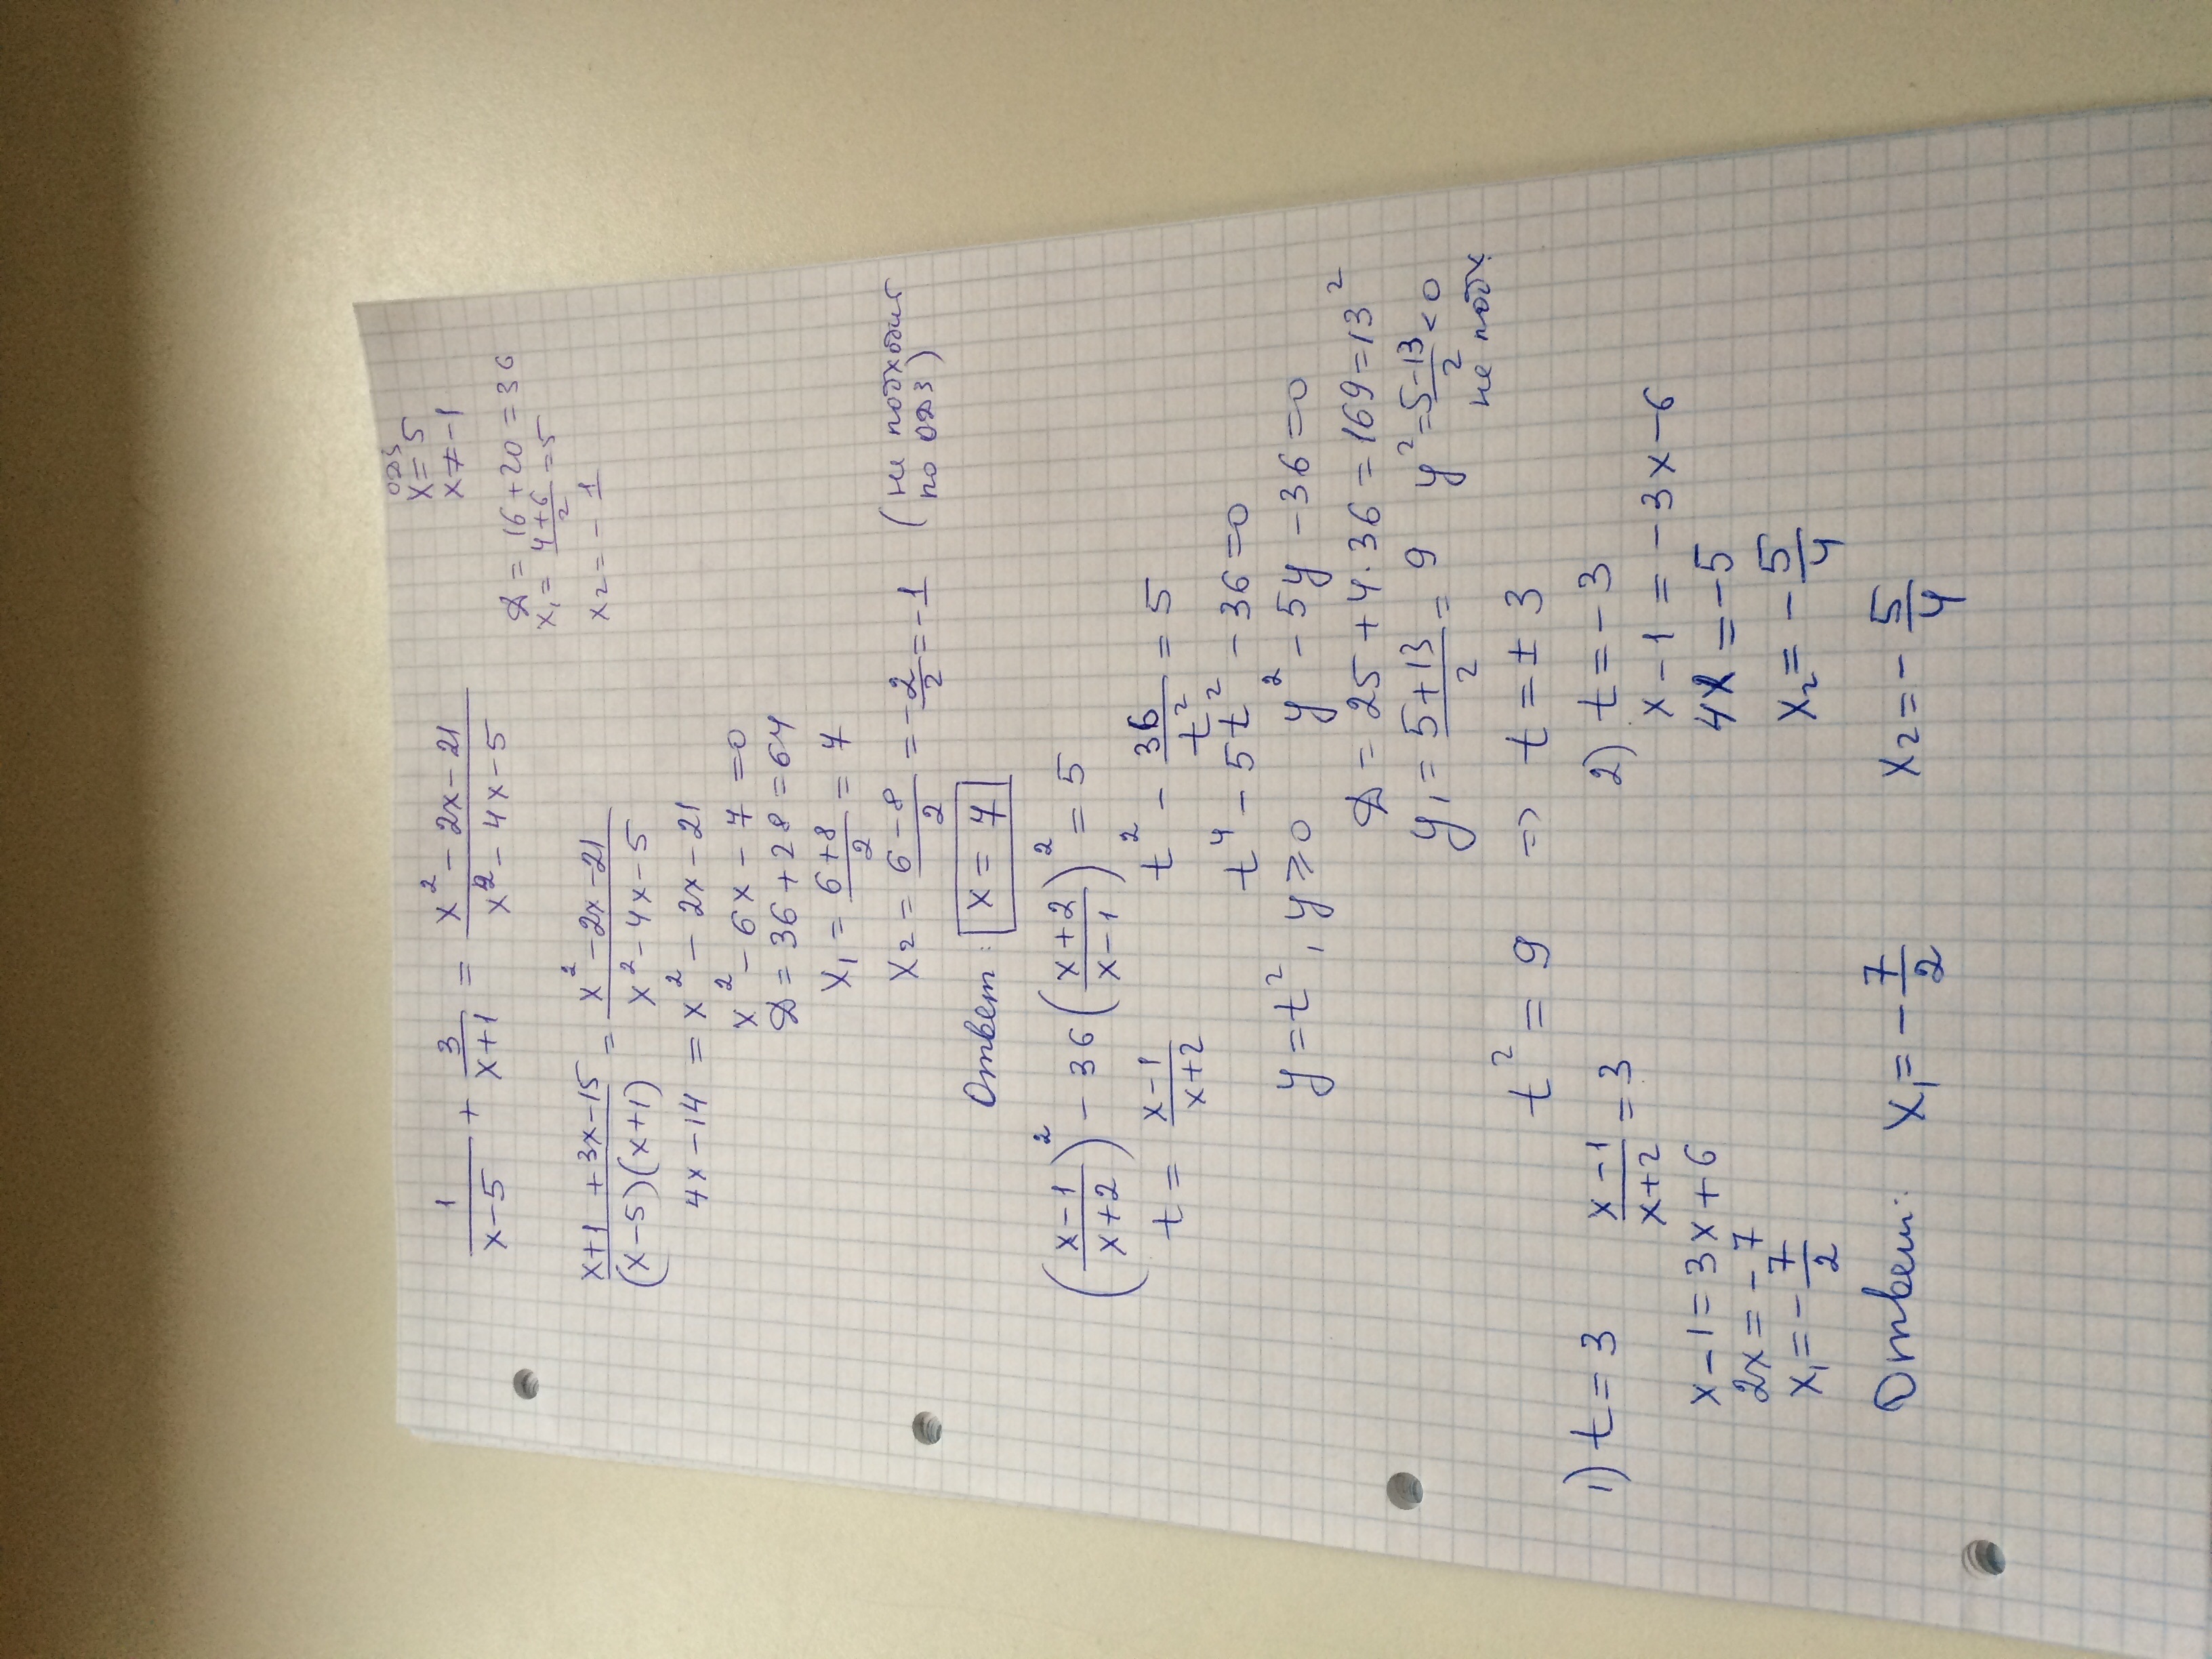 1/(x-5) + 3/(x+1) = (x² - 2x - 21)/(x² - 4x - 5)
ОДЗ
x = 5
x ≠ -1
(x+1+3x-15)/((x-5)(x+1)) = (x² - 2x - 21)/(x² - 4x - 5)
D = 16 + 20 = 36
x₁ = (4+6)/2 = 5
x₂ = -1
4x - 14 = x² - 2x - 21
x² - 6x - 7 = 0
D = 36 + 28 = 64
x₁ = (6+8)/2 = 7
x₂ = (6-8)/2 = -2/2 = -1 (не подходит
по ОДЗ)
Ответ: x = 7
((x-1)/(x+2))² - 36((x+2)/(x-1))² = 5
t = (x-1)/(x+2) t² - 36/t² = 5
t⁴ - 5t² - 36 = 0
y = t², y ⩾ 0 y² - 5y - 36 = 0
D = 25 + 4·36 = 169 = 13²
y₁ = (5+13)/2 = 9 y² = (5-13)/2 < 0
не подх.
t² = 9 => t = ±3
1) t = 3 (x-1)/(x+2) = 3 2) t = -3
x - 1 = 3x + 6 x - 1 = -3x - 6
2x = -7 4x = -5
x₁ = -7/2 x₂ = -5/4
Ответ: x₁ = -7/2 x₂ = -5/4